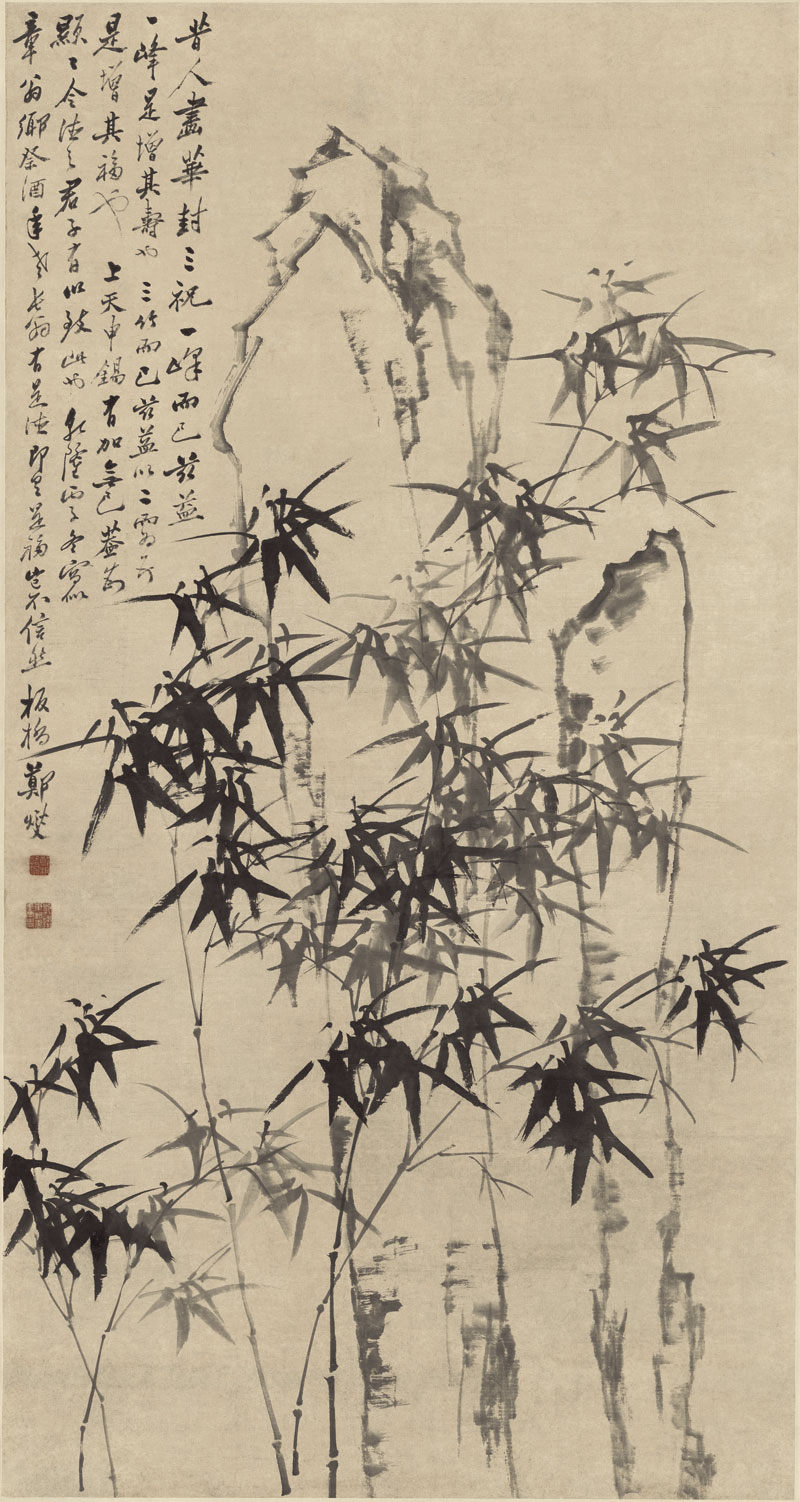 昔人畫華封三祝一峰而已茲益
一峰是增其壽也三竹而已茲益以二兩个
是增其福也 上天申錫有加無已蓋前
顯〻令德之君子有以致此也乾隆丙子冬寫似
章翁鄉祭酒年老長翁有是德即是福豈不信然 板橋鄭燮